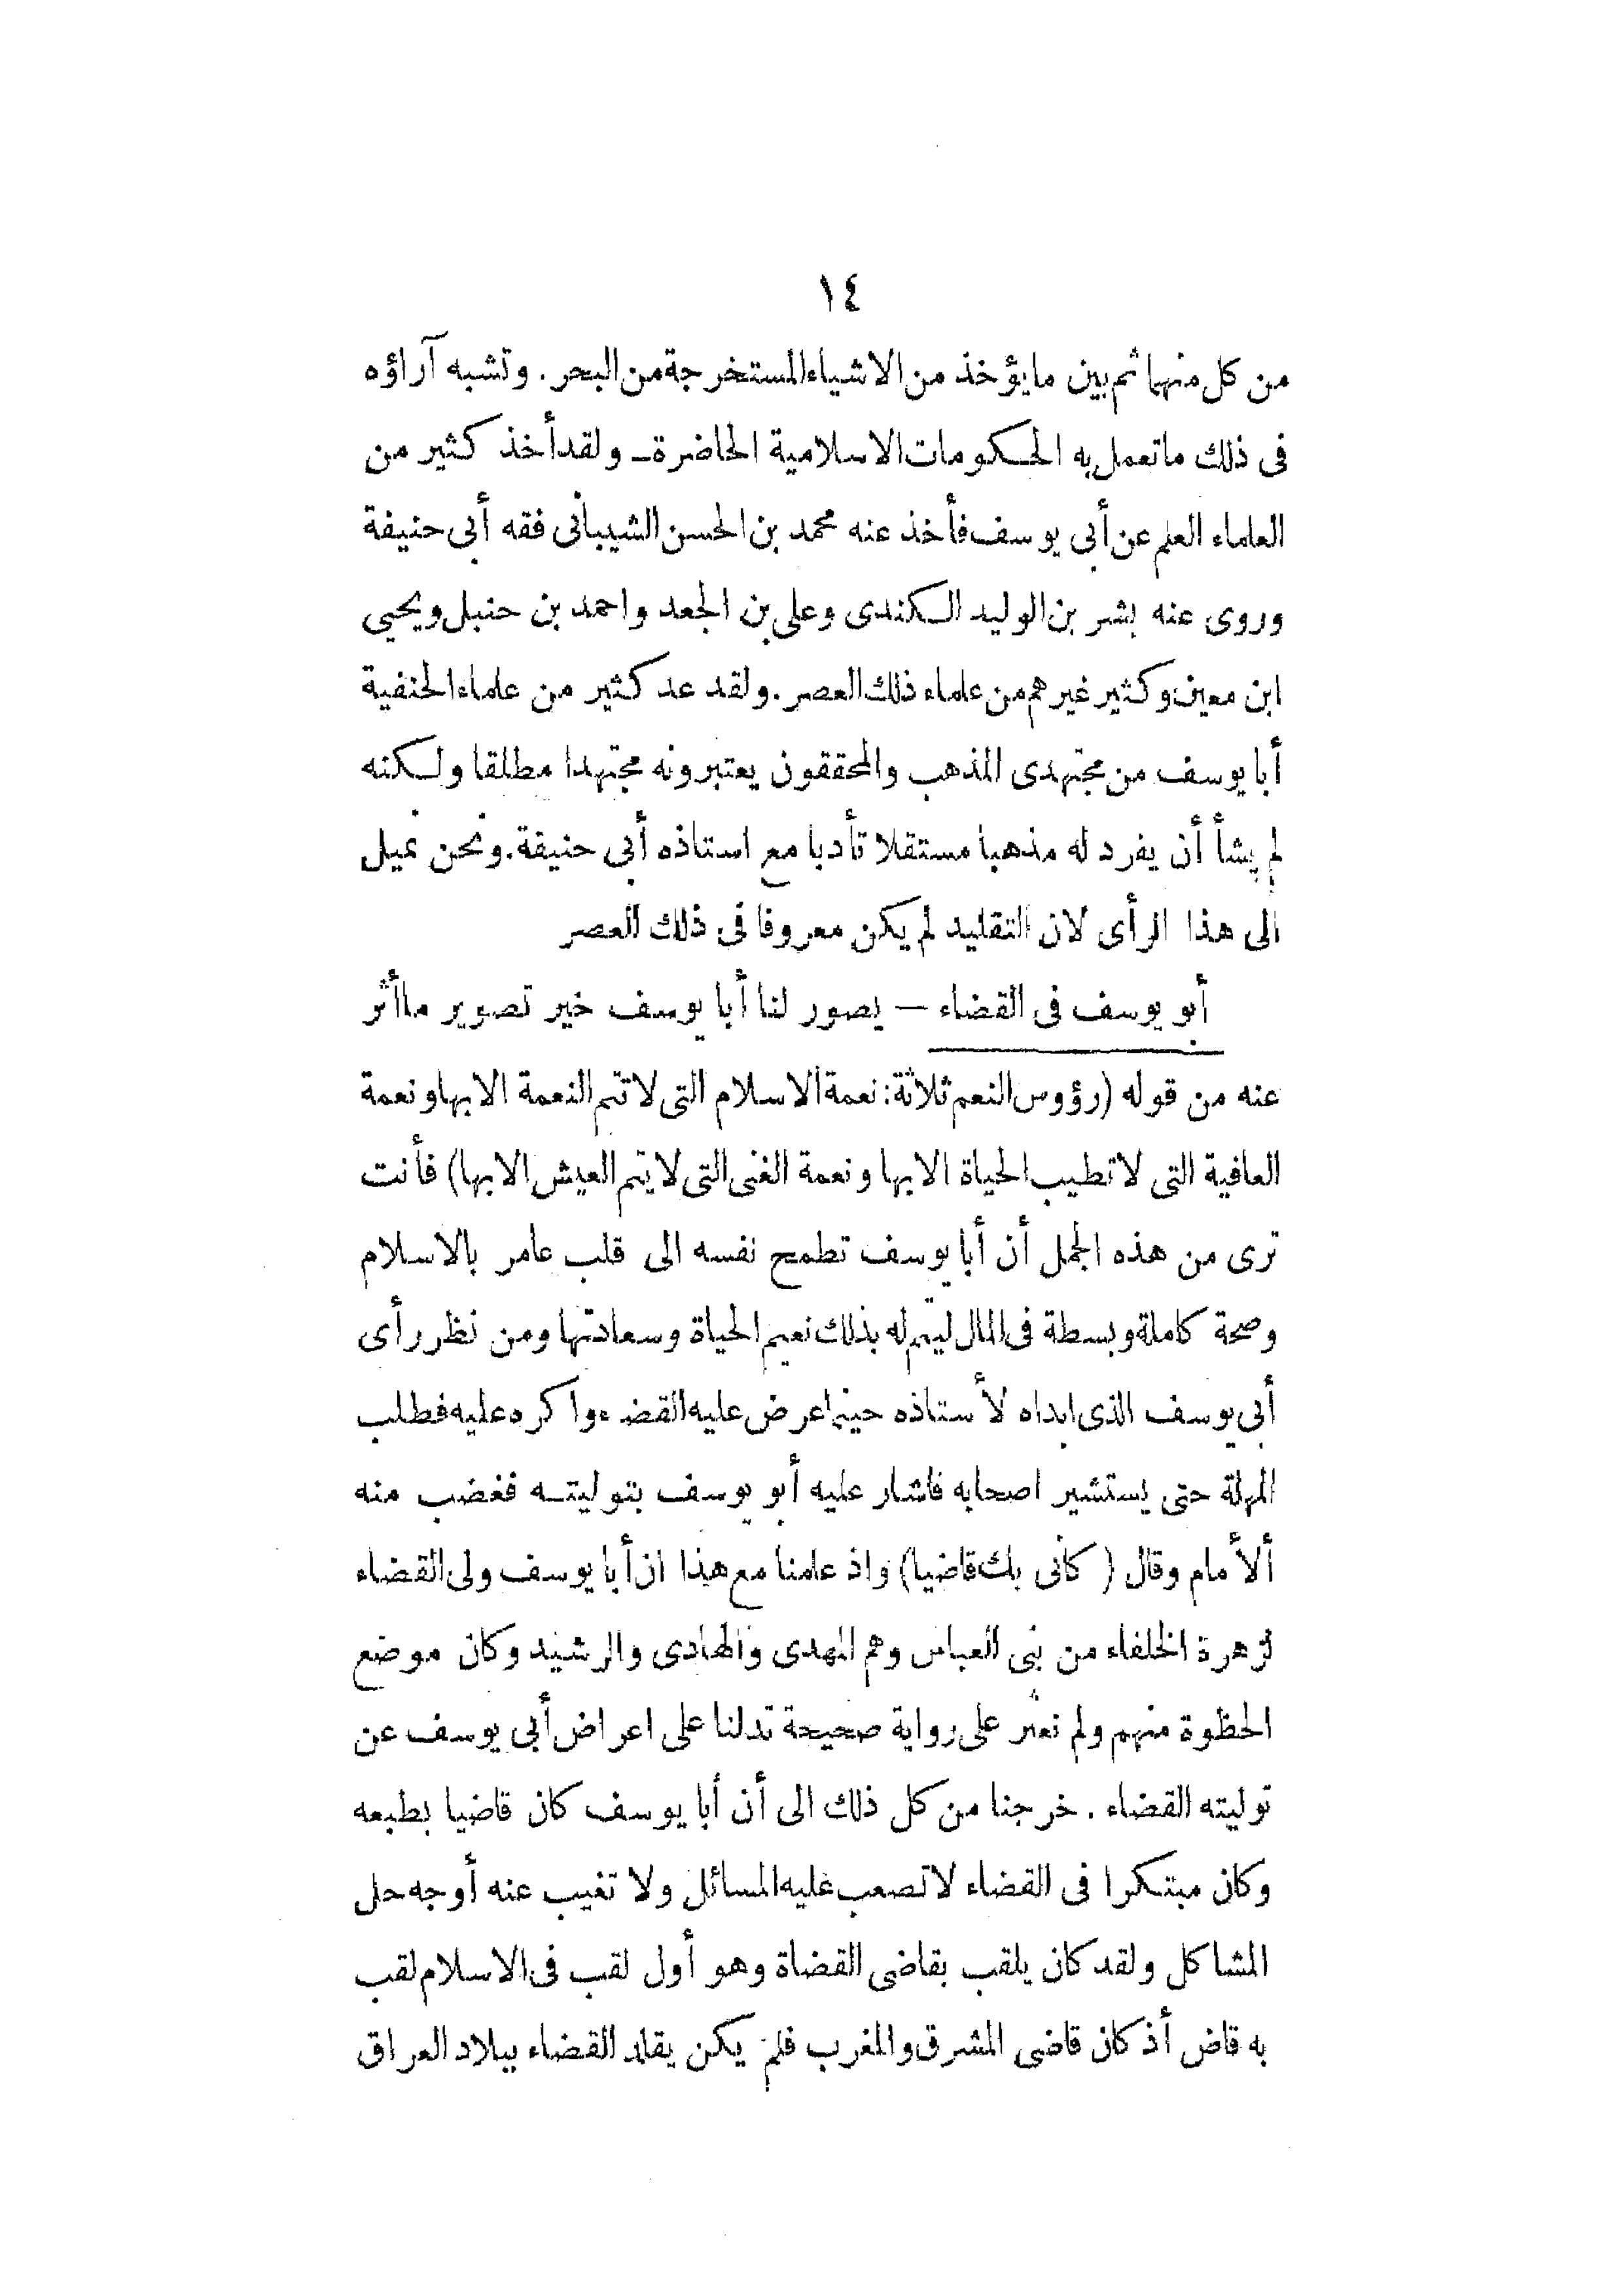 ١٤
من كل منهما ثم بين ما يؤخذ من الاشياء المستخرجة من البحر . وتشبه آراؤه
فى ذلك ما تعمل به الحكومات الاسلامية الحاضرة ــ ولقد أخذ كثير من
العلماء العلم عن أبى يوسف فأخذ عنه محمد بن الحسن الشيبانى فقه أبى حنيفة
وروى عنه بشر بن الوليد الكندى وعلى بن الجعد واحمد بن حنبل ويحيى
ابن معين وكثير غيرهم من علماء ذلك العصر . ولقد عد كثير من علماء الحنفية
أبا يوسف من مجتهدى المذهب والمحققون يعتبرونه مجتهدا مطلقا ولكنه
لم يشأ أن يفرد له مذهبا مستقلا تأدبا مع استاذه أبى حنيفة . ونحن نميل
الى هذا الرأى لان التقليد لم يكن معروفا فى ذلك العصر
أبو يوسف فى القضاء — يصور لنا أبا يوسف خير تصوير ما أثر
عنه من قوله (رؤوس النعم ثلاثة : نعمة الاسلام التى لا تتم النعمة الا بها ونعمة
العافية التى لا تطيب الحياة الا بها ونعمة الغنى التى لا يتم العيش الا بها) فأنت
ترى من هذه الجمل أن أبا يوسف تطمح نفسه الى قلب عامر بالاسلام
وصحة كاملة وبسطة فى المال ليتم له بذلك نعيم الحياة وسعادتها ومن نظر رأى
أبى يوسف الذى ابداه لأستاذه حينما عرض عليه القضاء واكره عليه فطلب
المهلة حتى يستشير اصحابه فاشار عليه أبو يوسف بتوليته فغضب منه
ألأمام وقال ( كأنى بك قاضيا) واذ علمنا مع هذا ان أبا يوسف ولى القضاء
لزهرة الخلفاء من بنى العباس وهم المهدى والهادى والرشيد وكان موضع
الحظوة منهم ولم نعثر على رواية صحيحة تدلنا على اعراض أبى يوسف عن
توليته القضاء . خرجنا من كل ذلك الى أن أبا يوسف كان قاضيا بطبعه
وكان مبتكرا فى القضاء لا تصعب عليه المسائل ولا تغيب عنه أوجه حل
المشاكل ولقد كان يلقب بقاضى القضاة وهو أول لقب فى الاسلام لقب
به قاض أذ كان قاضى المشرق والمغرب فلم يكن يقلد القضاء ببلاد العراق